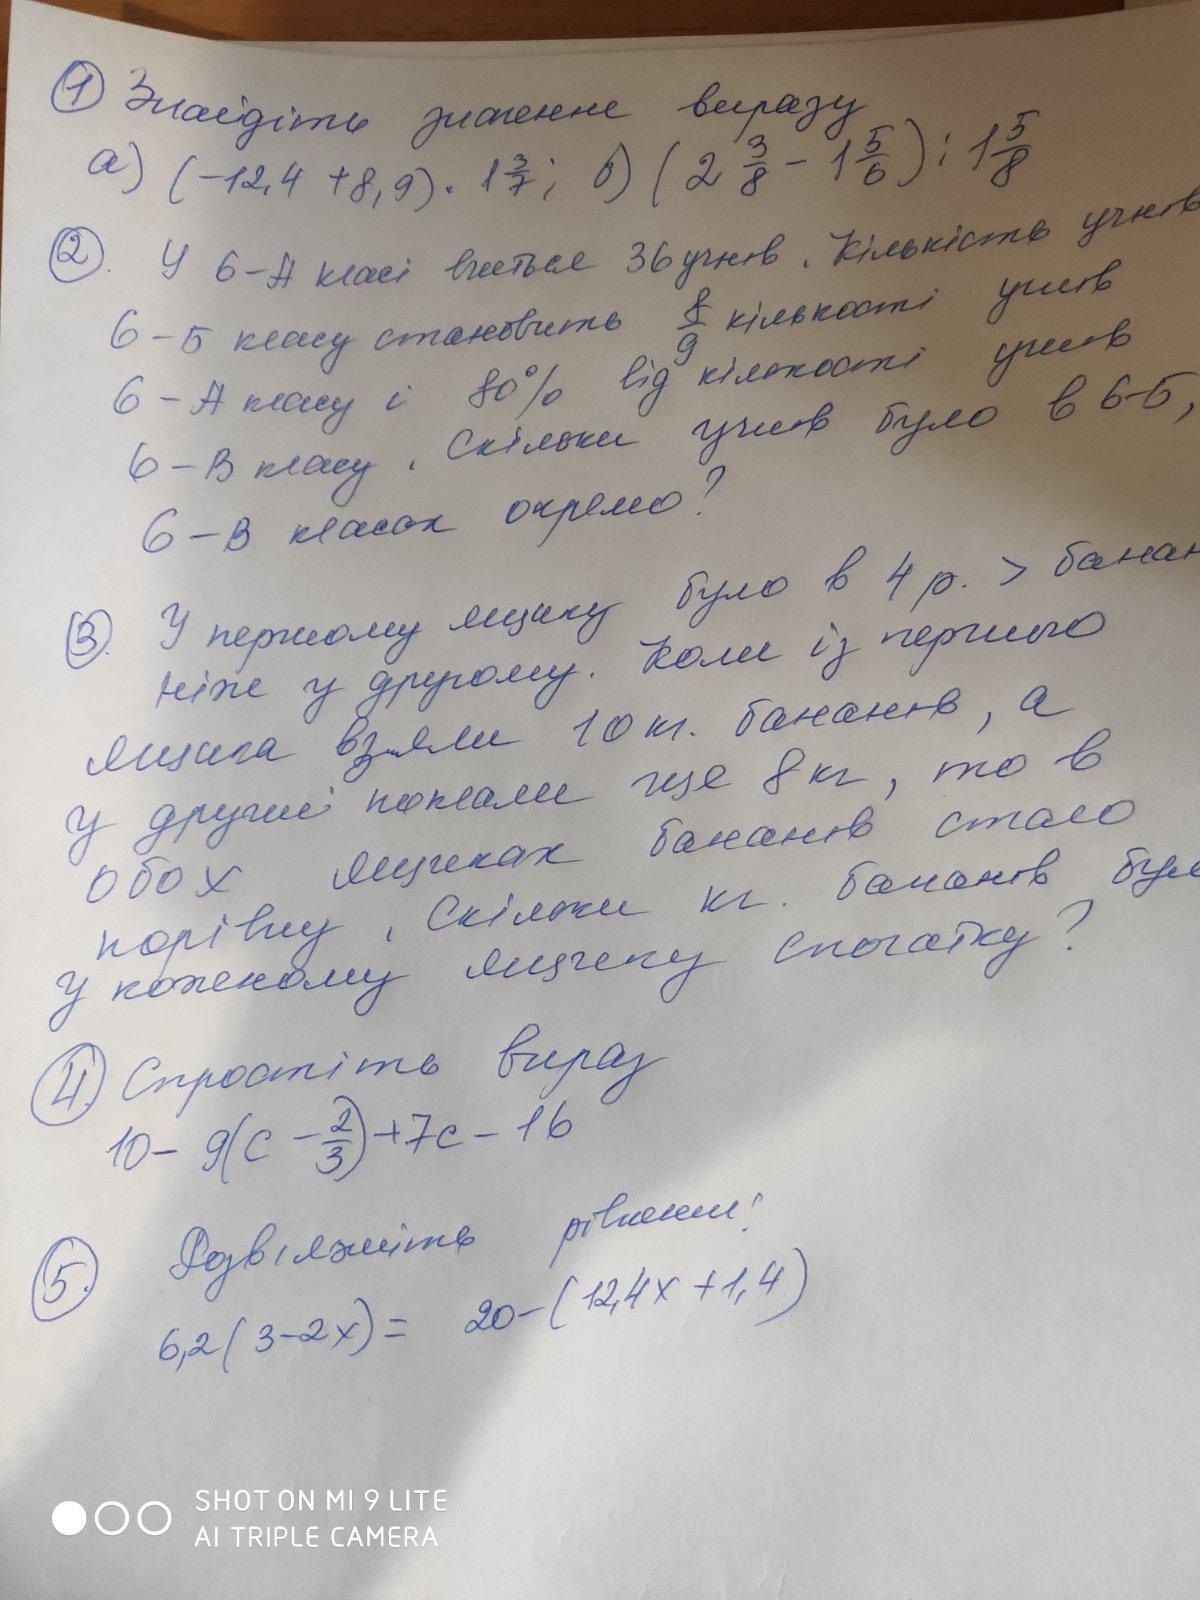 ① Знайдіть значення виразу
а) (-12,4 + 8,9) · 1 3/7; б) (2 3/8 - 1 5/6) : 1 5/8
②. У 6-А класі вчиться 36 учнів. Кількість учнів
6-Б класу становить 8/9 кількості учнів
6-А класу і 80% від кількості учнів
6-В класу. Скільки учнів було в 6-Б,
6-В класах окремо?
③. У першому ящику було в 4 р. > банан
ніж у другому. Коли із першого
ящика взяли 10 кг. бананів, а
у другий поклали ще 8 кг, то в
обох ящиках бананів стало
порівну. Скільки кг. бананів бул
у кожному ящику спочатку?
④. Спростіть вираз
10 - 9(c - 2/3) + 7c - 16
⑤. Розв'яжіть рівняння:
6,2(3-2x) = 20 - (12,4x + 1,4)
SHOT ON MI 9 LITE
AI TRIPLE CAMERA